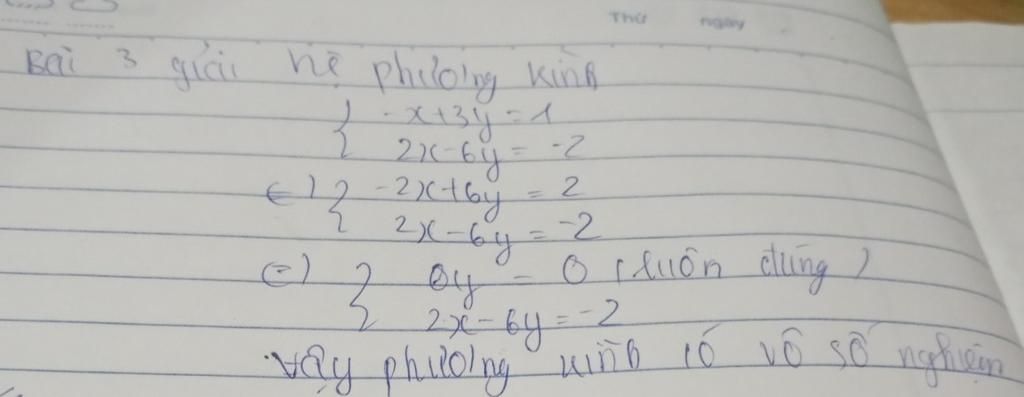 Thứ ngày
Bài 3 giải hệ phương trình
{ -x+3y=1
2x-6y=-2
(=) { -2x+6y=2
2x-6y=-2
(=) { 0y=0 (luôn đúng)
2x-6y=-2
Vậy phương trình có vô số nghiệm